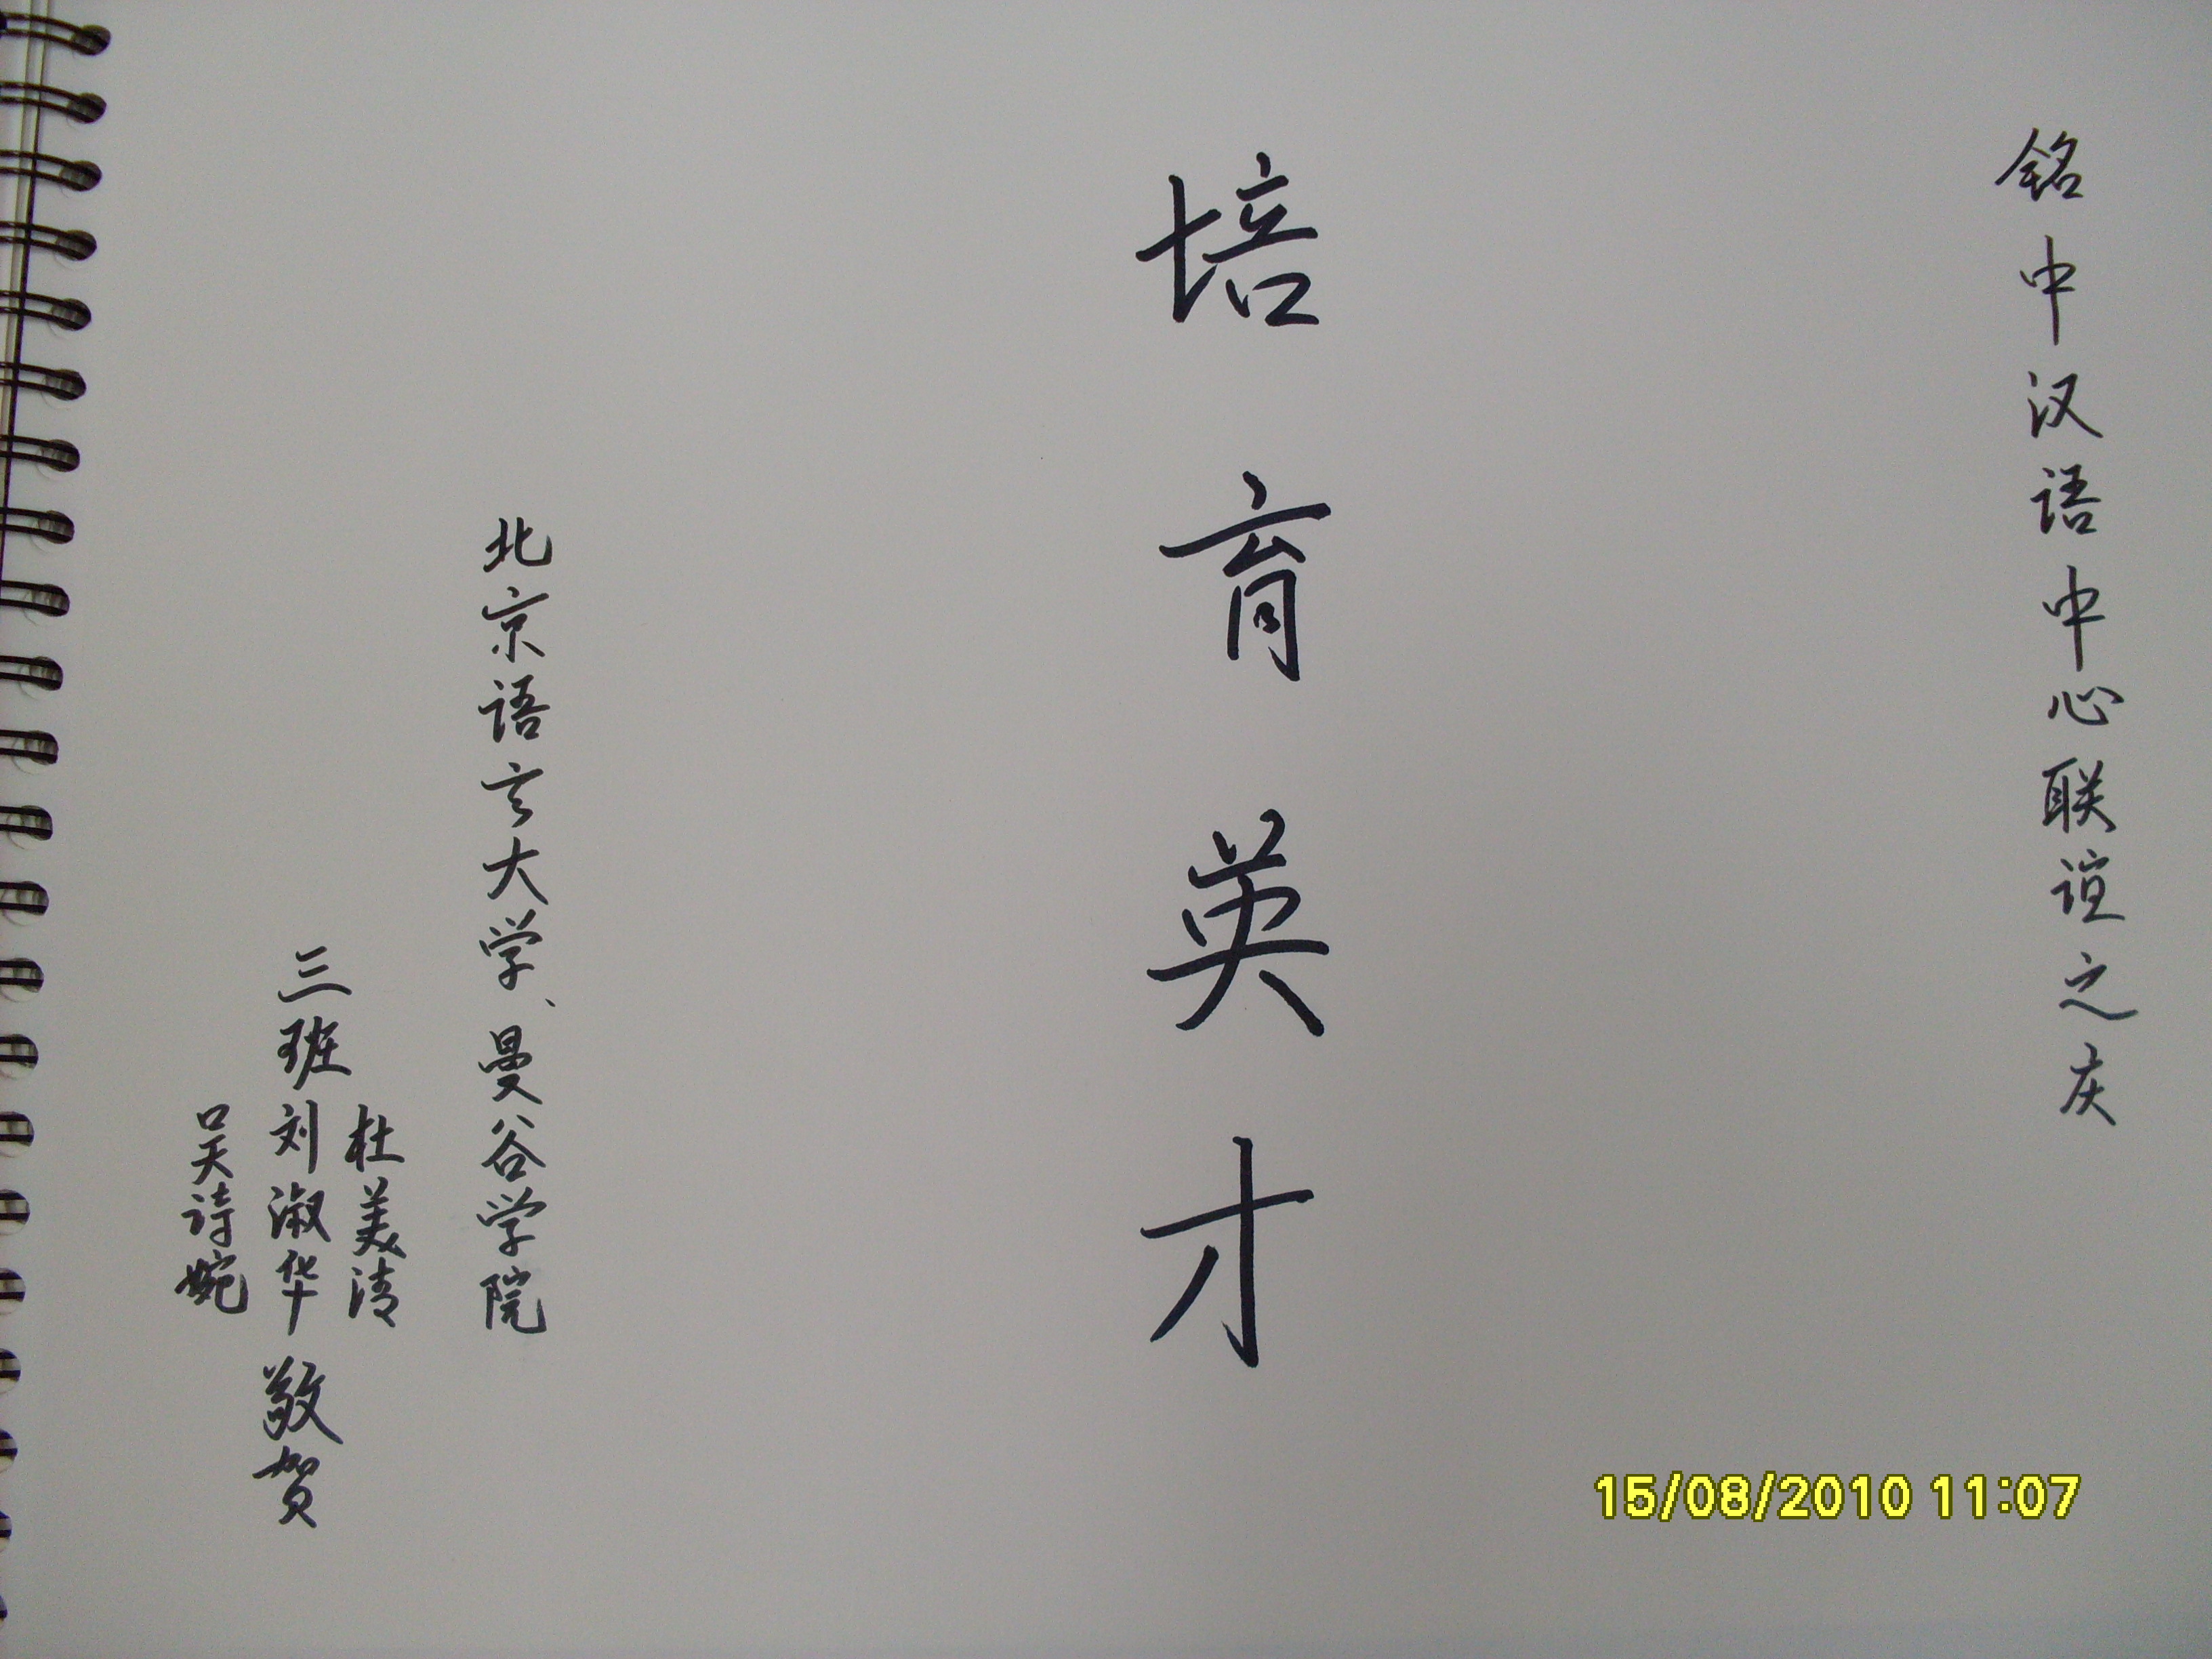 铭中汉语中心联谊之庆
培育英才
北京语言大学、曼谷学院
三班
杜美清
刘淑华
吴诗婉
敬贺
15/08/2010 11:07